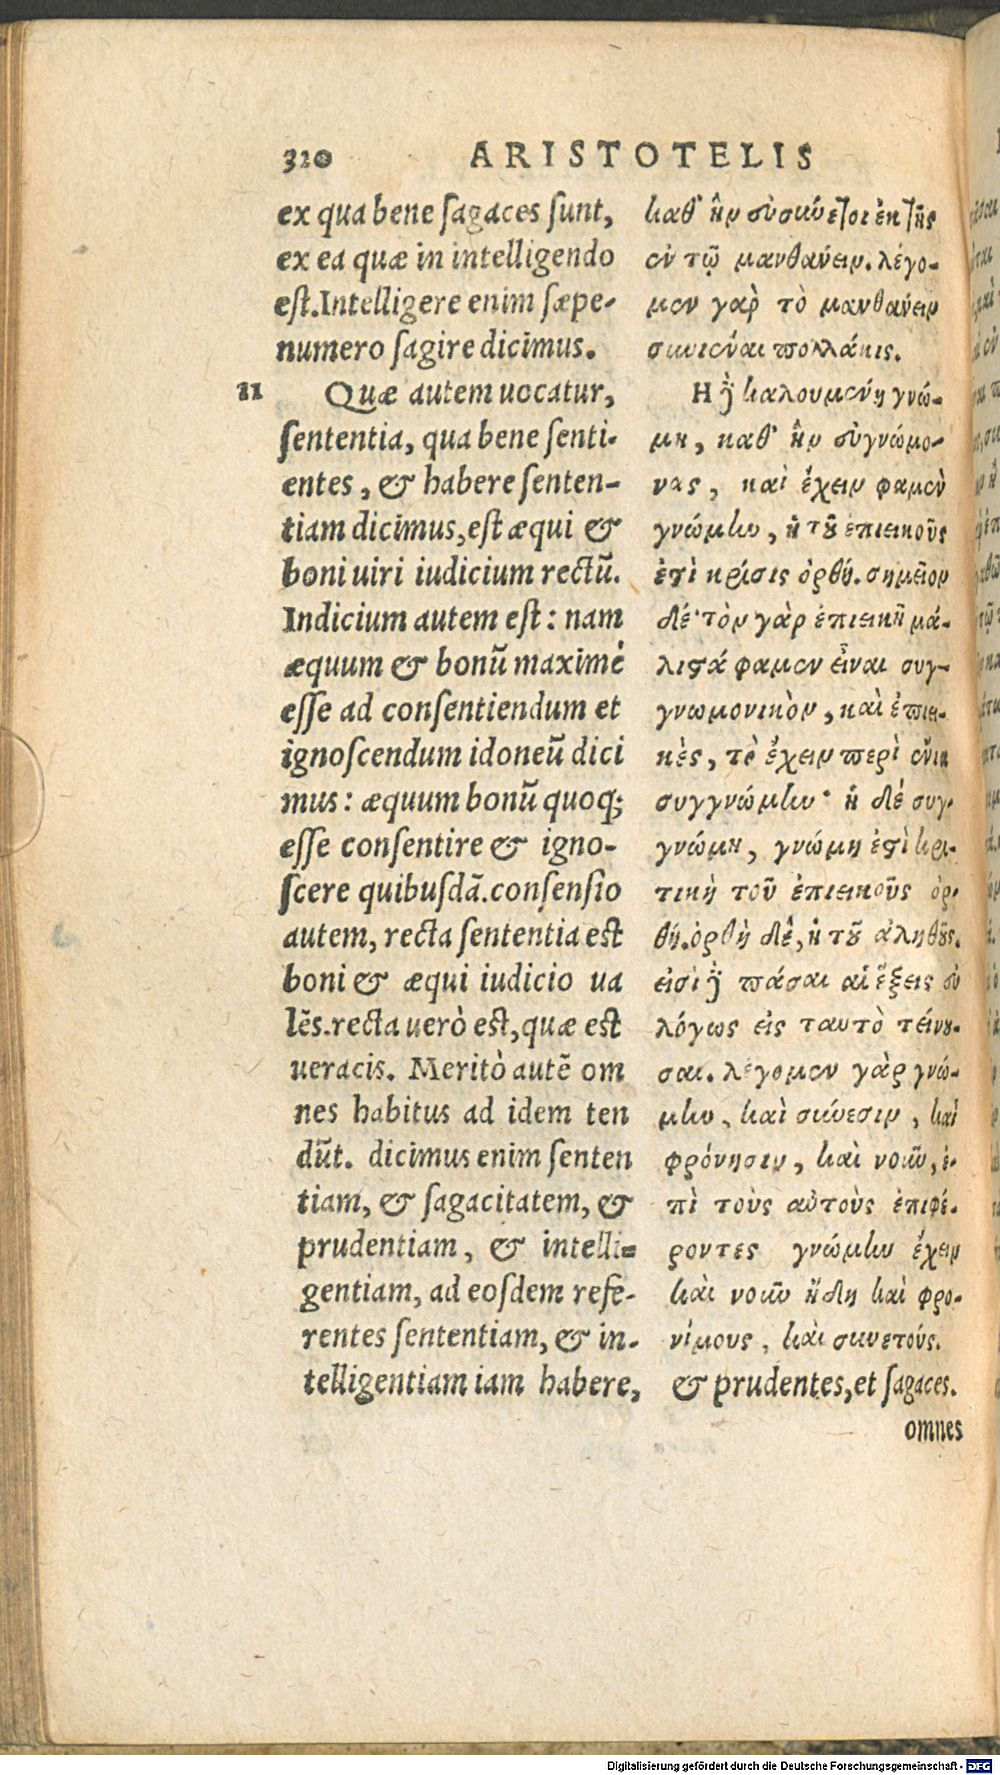 320 ARISTOTELIS
ex qua bene ſagaces ſunt,
ex ea quæ in intelligendo
eſt. Intelligere enim ſæpe-
numero ſagire dicimus.
11 Quæ autem uocatur,
ſententia, qua bene ſenti-
entes, & habere ſenten-
tiam dicimus, eſt æqui &
boni uiri iudicium rectū.
Indicium autem eſt: nam
æquum & bonū maximè
eſſe ad conſentiendum et
ignoſcendum idoneū dici
mus: æquum bonū quoq;
eſſe conſentire & igno-
ſcere quibuſdā. conſenſio
autem, recta ſententia eſt
boni & æqui iudicio ua
lēs. recta uerò eſt, quæ eſt
ueracis. Meritò autē om
nes habitus ad idem ten
dūt. dicimus enim ſenten
tiam, & ſagacitatem, &
prudentiam, & intelli-
gentiam, ad eoſdem refe-
rentes ſententiam, & in-
telligentiam iam habere,
καθ' ἣν εὐσύνετοι ἐκ τῆς
ἐν τῷ μανθάνειν. λέγο-
μεν γὰρ τὸ μανθάνειν
συνιέναι πολλάκις.
Η δὲ καλουμένη γνώ-
μη, καθ' ἣν εὐγνώμο-
νας, καὶ ἔχειν φαμὲν
γνώμην, ἡ τοῦ ἐπιεικοῦς
ἐστὶ κρίσις ὀρθή. σημεῖον
δέ· τὸν γὰρ ἐπιεικῆ μά-
λιστά φαμεν εἶναι συγ-
γνωμονικὸν, καὶ ἐπιει-
κὲς, τὸ ἔχειν περὶ ἔνια
συγγνώμην· ἡ δὲ συγ-
γνώμη, γνώμη ἐστὶ κρι-
τικὴ τοῦ ἐπιεικοῦς ὀρ-
θή. ὀρθὴ δὲ, ἡ τοῦ ἀληθοῦς.
εἰσὶ δὲ πᾶσαι αἱ ἕξεις εὐ
λόγως εἰς ταυτὸ τείνου-
σαι. λέγομεν γὰρ γνώ-
μην, καὶ σύνεσιν, καὶ
φρόνησιν, καὶ νοῦν, ἐ-
πὶ τοὺς αὐτοὺς ἐπιφέ-
ροντες γνώμην ἔχειν
καὶ νοῦν ἤδη καὶ φρο-
νίμους, καὶ συνετούς.
& prudentes, et ſagaces.
omnes
Digitalisierung gefördert durch die Deutsche Forschungsgemeinschaft - DFG